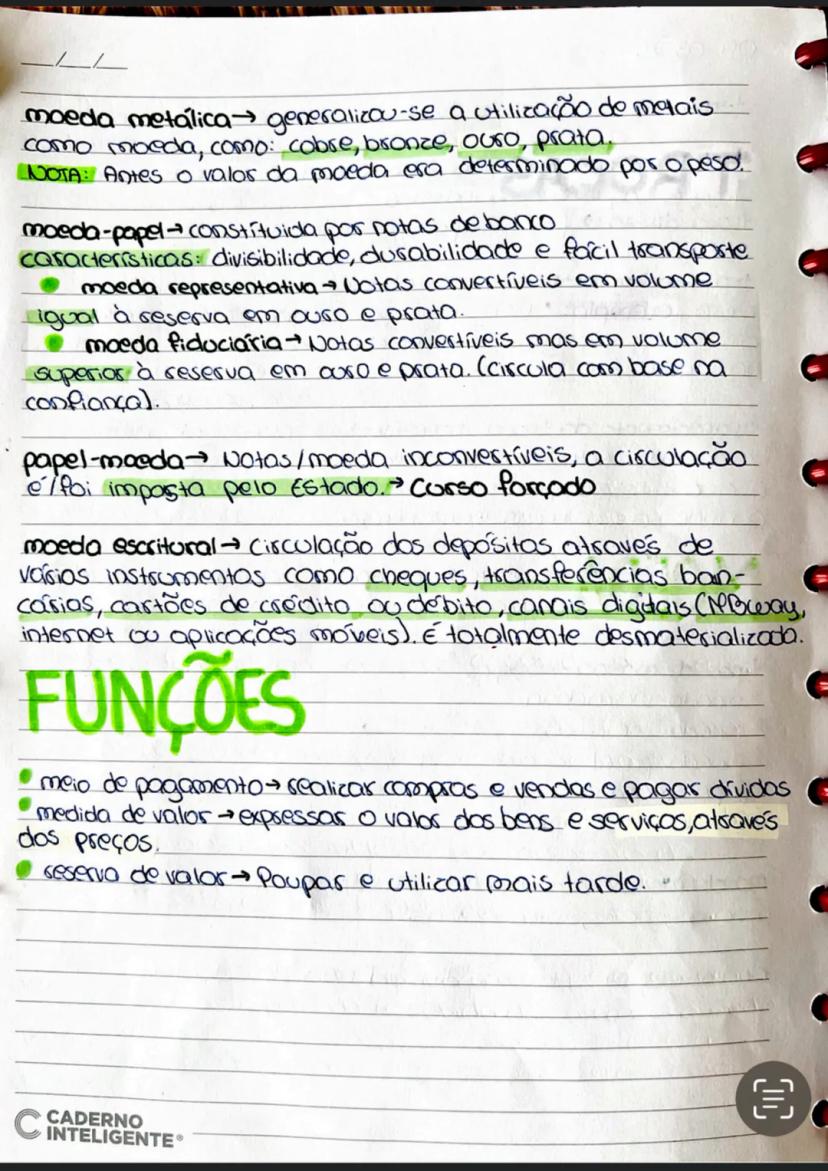 __/__/__
moeda metálica→ generalizou-se a utilização de metais
como moeda, como: cobre, bronze, ouro, prata.
NOTA: Antes o valor da moeda era determinado por o peso.
moeda-papel→ constítuida por notas de banco
características: divisibilidade, durabilidade e fácil transporte
• moeda representativa→ Notas convertíveis em volume
igual à reserva em ouro e prata.
• moeda fiduciária→ Notas convertíveis mas em volume
superior à reserva em ouro e prata. (circula com base na
confiança).
papel-moeda→ Notas/moeda inconvertíveis, a circulação
é/foi imposta pelo Estado.→ Curso forçado
moeda escritural→ circulação dos depósitos através de
vários instrumentos como cheques, transferências ban-
cárias, cartões de crédito ou débito, canais digitais (MBway,
internet ou aplicações móveis). É totalmente desmaterializada.
FUNÇÕES
• meio de pagamento→ realizar compras e vendas e pagar dívidas
• medida de valor→ expressar o valor dos bens e serviços, através
dos preços.
• reserva de valor→ Poupar e utilizar mais tarde.
CADERNO
INTELIGENTE®